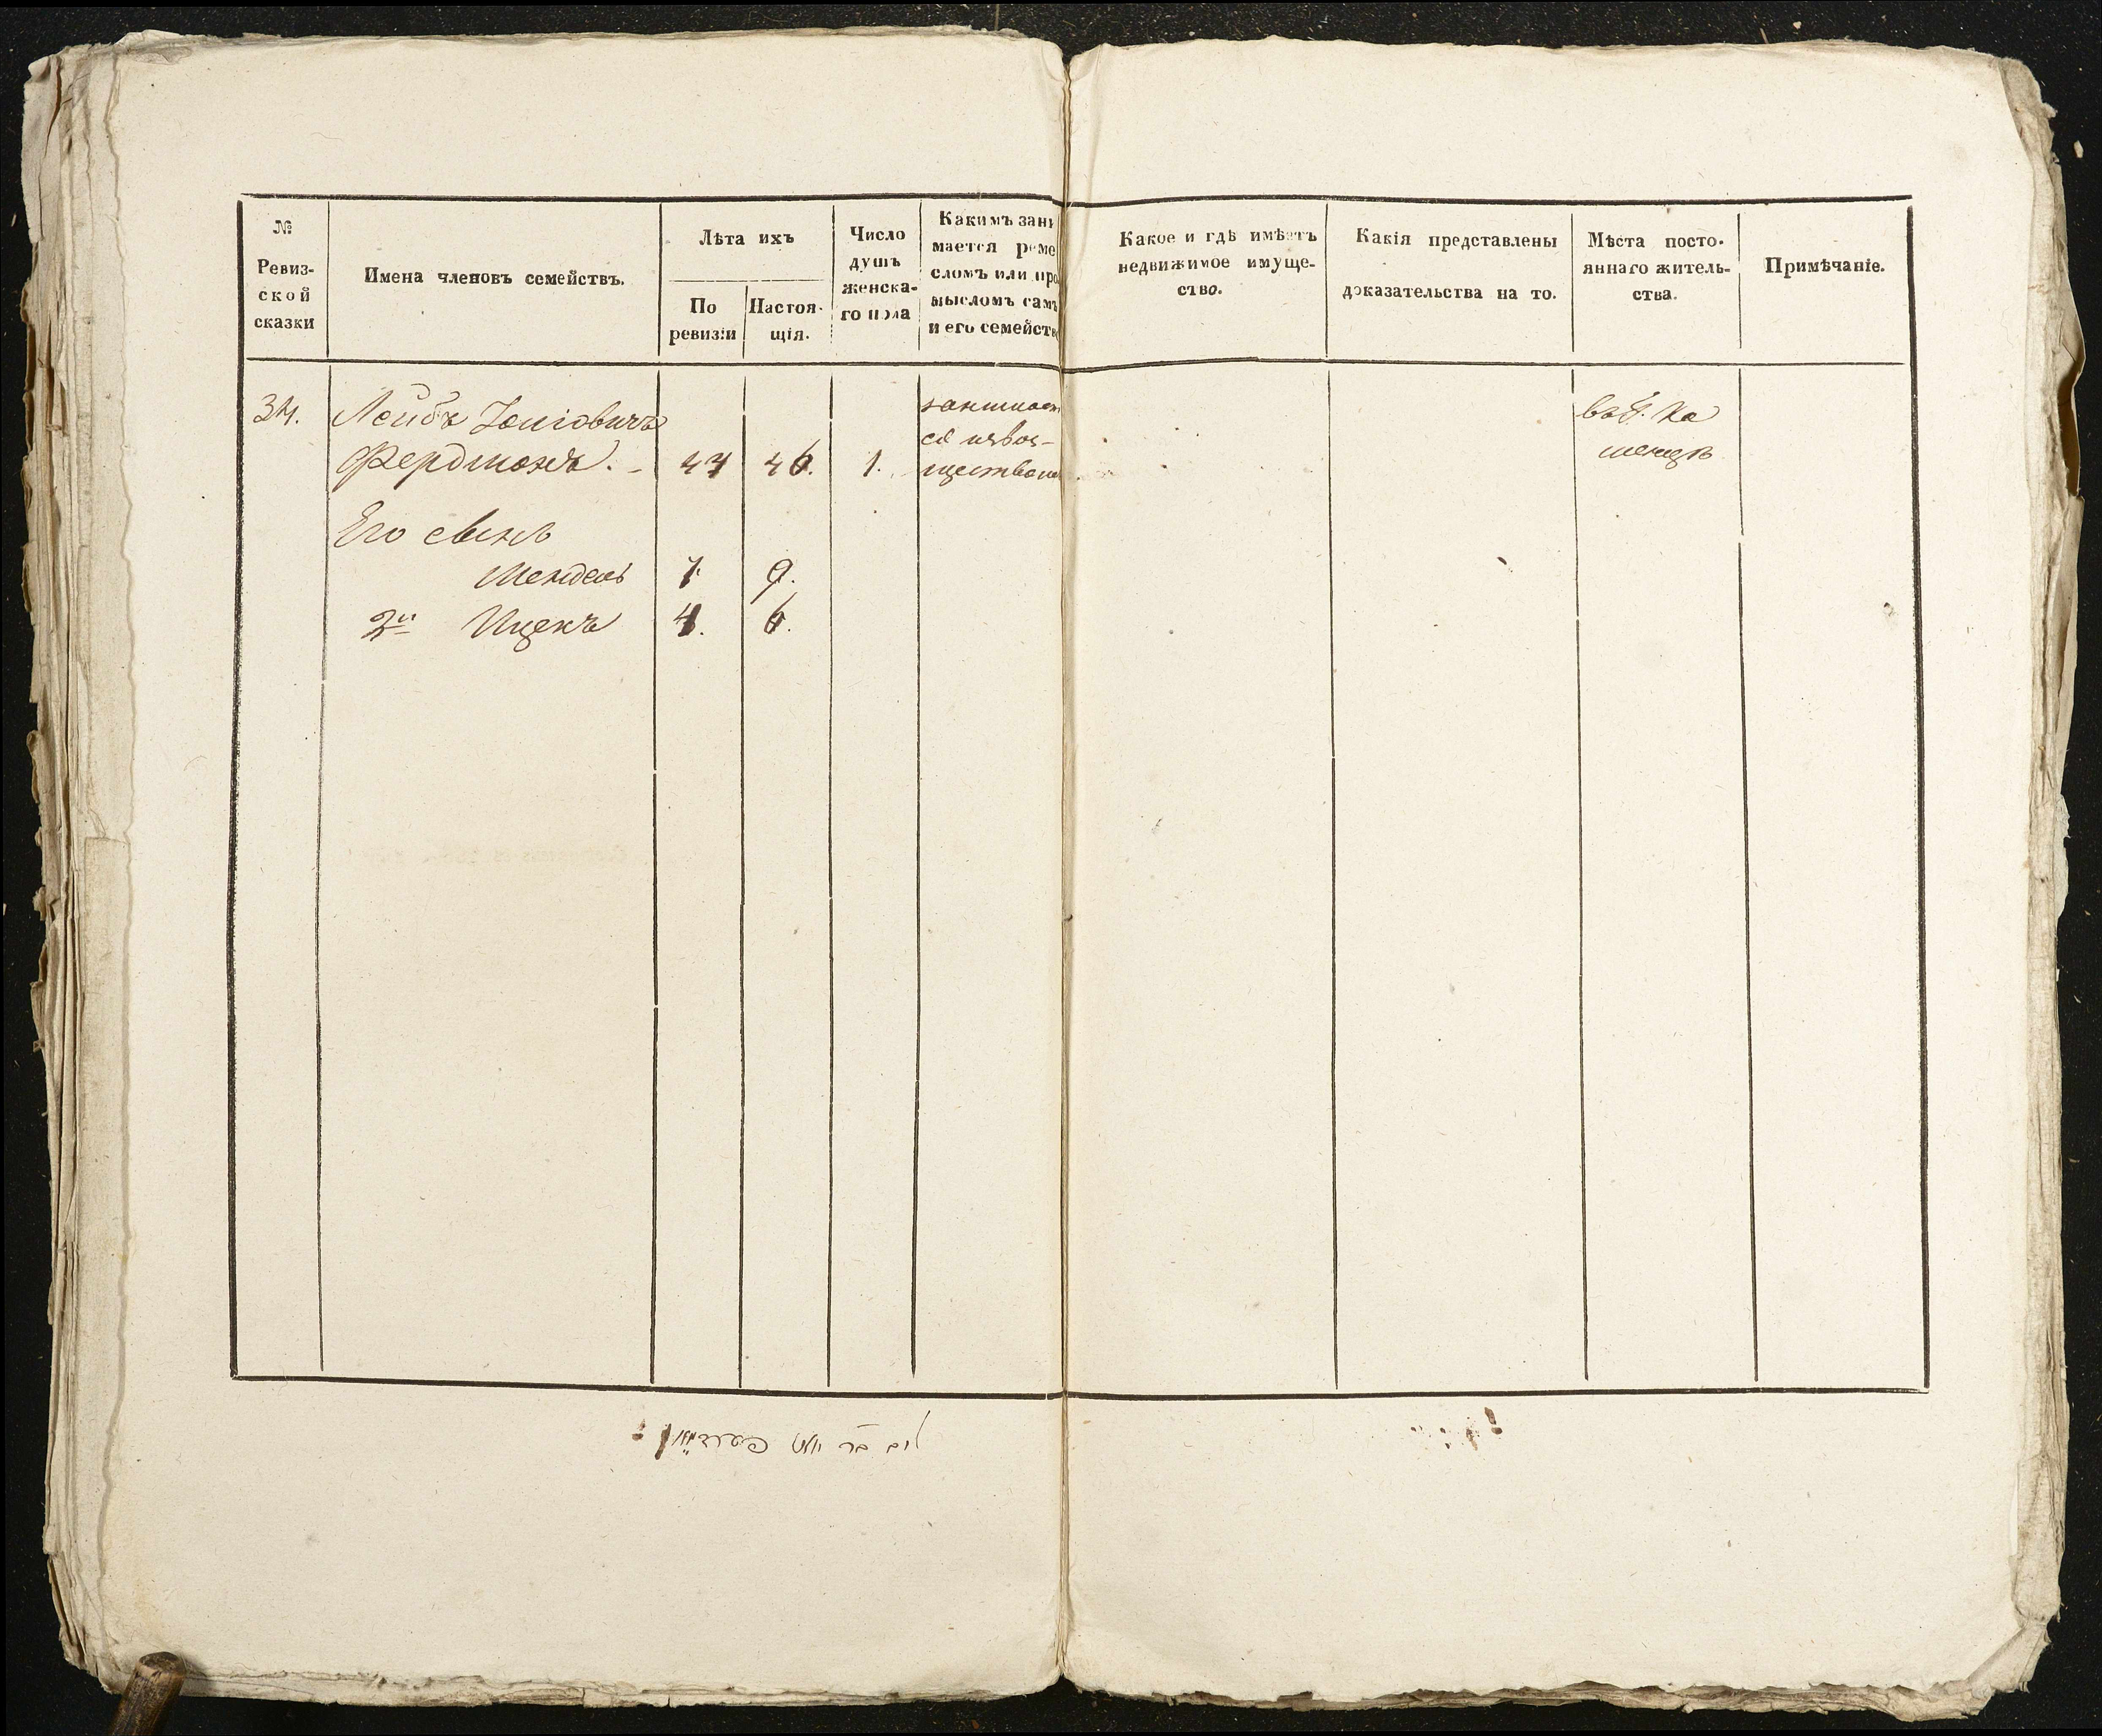 №
Ревиз-
ской
сказки
Имена членовъ семействъ.
Лѣта ихъ
По
ревизіи
Настоя-
щія.
Число
душъ
женска-
го пола
Какимъ зани
мается реме
сломъ или про
мысломъ самъ
и его семейство
Какое и гдѣ имѣетъ
недвижимое имуще-
ство.
Какія представлены
доказательства на то.
Мѣста посто-
яннаго житель-
ства.
Примѣчаніе.
34.
Лейбъ
Фердманъ. 44 46. 1.
занимает
ся извоз-
ществомъ
въ Г. Ка
менцѣ
Его сынъ
Мендель 7 9.
2й Ицекъ 4. 6.
ליב בר